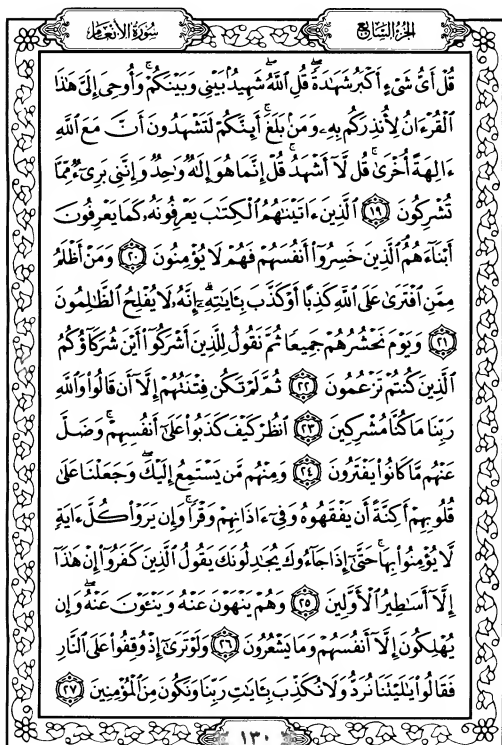 سُورَةُ الأَنْعَامِ
الجُزْءُ السَّابِعُ
قُلْ أَىُّ شَىْءٍ أَكْبَرُ شَهَٰدَةًۖ قُلِ ٱللَّهُۖ شَهِيدُۢ بَيْنِى وَبَيْنَكُمْۚ وَأُوحِىَ إِلَىَّ هَٰذَا
ٱلْقُرْءَانُ لِأُنذِرَكُم بِهِۦ وَمَنۢ بَلَغَۚ أَئِنَّكُمْ لَتَشْهَدُونَ أَنَّ مَعَ ٱللَّهِ
ءَالِهَةً أُخْرَىٰۚ قُل لَّآ أَشْهَدُۚ قُلْ إِنَّمَا هُوَ إِلَٰهٌ وَٰحِدٌ وَإِنَّنِى بَرِىٓءٌ مِّمَّا
تُشْرِكُونَ ١٩ ٱلَّذِينَ ءَاتَيْنَٰهُمُ ٱلْكِتَٰبَ يَعْرِفُونَهُۥ كَمَا يَعْرِفُونَ
أَبْنَآءَهُمُ ٱلَّذِينَ خَسِرُوٓا۟ أَنفُسَهُمْ فَهُمْ لَا يُؤْمِنُونَ ٢٠ وَمَنْ أَظْلَمُ
مِمَّنِ ٱفْتَرَىٰ عَلَى ٱللَّهِ كَذِبًا أَوْ كَذَّبَ بِـَٔايَٰتِهِۦٓۗ إِنَّهُۥ لَا يُفْلِحُ ٱلظَّٰلِمُونَ
٢١ وَيَوْمَ نَحْشُرُهُمْ جَمِيعًا ثُمَّ نَقُولُ لِلَّذِينَ أَشْرَكُوٓا۟ أَيْنَ شُرَكَآؤُكُمُ
ٱلَّذِينَ كُنتُمْ تَزْعُمُونَ ٢٢ ثُمَّ لَمْ تَكُن فِتْنَتُهُمْ إِلَّآ أَن قَالُوا۟ وَٱللَّهِ
رَبِّنَا مَا كُنَّا مُشْرِكِينَ ٢٣ ٱنظُرْ كَيْفَ كَذَبُوا۟ عَلَىٰٓ أَنفُسِهِمْۚ وَضَلَّ
عَنْهُم مَّا كَانُوا۟ يَفْتَرُونَ ٢٤ وَمِنْهُم مَّن يَسْتَمِعُ إِلَيْكَۖ وَجَعَلْنَا عَلَىٰ
قُلُوبِهِمْ أَكِنَّةً أَن يَفْقَهُوهُ وَفِىٓ ءَاذَانِهِمْ وَقْرًاۚ وَإِن يَرَوْا۟ كُلَّ ءَايَةٍ
لَّا يُؤْمِنُوا۟ بِهَاۚ حَتَّىٰٓ إِذَا جَآءُوكَ يُجَٰدِلُونَكَ يَقُولُ ٱلَّذِينَ كَفَرُوٓا۟ إِنْ هَٰذَآ
إِلَّآ أَسَٰطِيرُ ٱلْأَوَّلِينَ ٢٥ وَهُمْ يَنْهَوْنَ عَنْهُ وَيَنْـَٔوْنَ عَنْهُۖ وَإِن
يُهْلِكُونَ إِلَّآ أَنفُسَهُمْ وَمَا يَشْعُرُونَ ٢٦ وَلَوْ تَرَىٰٓ إِذْ وُقِفُوا۟ عَلَى ٱلنَّارِ
فَقَالُوا۟ يَٰلَيْتَنَا نُرَدُّ وَلَا نُكَذِّبَ بِـَٔايَٰتِ رَبِّنَا وَنَكُونَ مِنَ ٱلْمُؤْمِنِينَ ٢٧
١٣٠